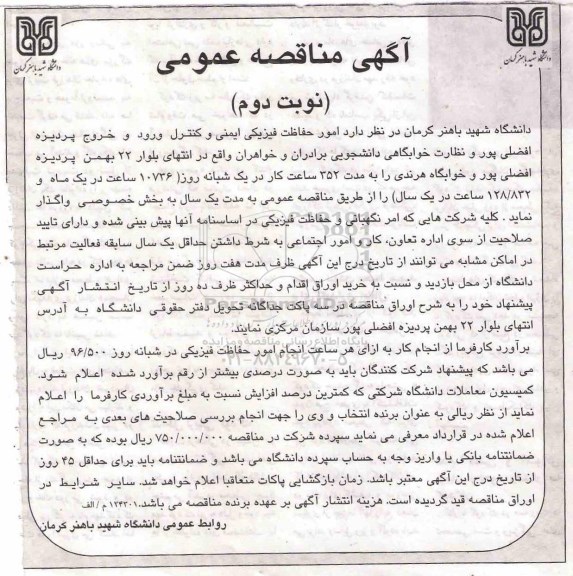 دانشگاه شهید باهنر کرمان
دانشگاه شهید باهنر کرمان
آگهی مناقصه عمومی
(نوبت دوم)
دانشگاه شهید باهنر کرمان در نظر دارد امور حفاظت فیزیکی ایمنی و کنترل ورود و خروج پردیزه
افضلی پور و نظارت خوابگاهی دانشجویی برادران و خواهران واقع در انتهای بلوار ۲۲ بهمن پردیزه
افضلی پور و خوابگاه هرندی را به مدت ۳۵۲ ساعت کار در یک شبانه روز( ۱۰۷۳۶ ساعت در یک ماه و
۱۲۸/۸۳۲ ساعت در یک سال) را از طریق مناقصه عمومی به مدت یک سال به بخش خصوصی واگذار
نماید . کلیه شرکت هایی که امر نگهبانی و حفاظت فیزیکی در اساسنامه آنها پیش بینی شده و دارای تایید
صلاحیت از سوی اداره تعاون، کار و امور اجتماعی به شرط داشتن حداقل یک سال سابقه فعالیت مرتبط
در اماکن مشابه می توانند از تاریخ درج این آگهی ظرف مدت هفت روز ضمن مراجعه به اداره حراست
دانشگاه از محل بازدید و نسبت به خرید اوراق اقدام و حداکثر ظرف ده روز از تاریخ انتشار آگهی
پیشنهاد خود را به شرح اوراق مناقصه در سه پاکت جداگانه تحویل دفتر حقوقی دانشگاه به آدرس
انتهای بلوار ۲۲ بهمن پردیزه افضلی پور سازمان مرکزی نمایند.
برآورد کارفرما از انجام کار به ازای هر ساعت انجام امور حفاظت فیزیکی در شبانه روز ۹۶/۵۰۰ ریال
می باشد که پیشنهاد شرکت کنندگان باید به صورت درصدی بیشتر از رقم برآورد شده اعلام شود.
کمیسیون معاملات دانشگاه شرکتی که کمترین درصد افزایش نسبت به مبلغ برآوردی کارفرما را اعلام
نماید از نظر ریالی به عنوان برنده انتخاب و وی را جهت انجام بررسی صلاحیت های بعدی به مراجع
اعلام شده در قرارداد معرفی می نماید سپرده شرکت در مناقصه ۷۵۰/۰۰۰/۰۰۰ ریال بوده که به صورت
ضمانتنامه بانکی یا واریز وجه به حساب سپرده دانشگاه می باشد و ضمانتنامه باید برای حداقل ۴۵ روز
از تاریخ درج این آگهی معتبر باشد. زمان بازگشایی پاکات متعاقبا اعلام خواهد شد. سایر شرایط در
اوراق مناقصه قید گردیده است. هزینه انتشار آگهی بر عهده برنده مناقصه می باشد.۱۲۳۲۰۱ م / الف
روابط عمومی دانشگاه شهید باهنر کرمان